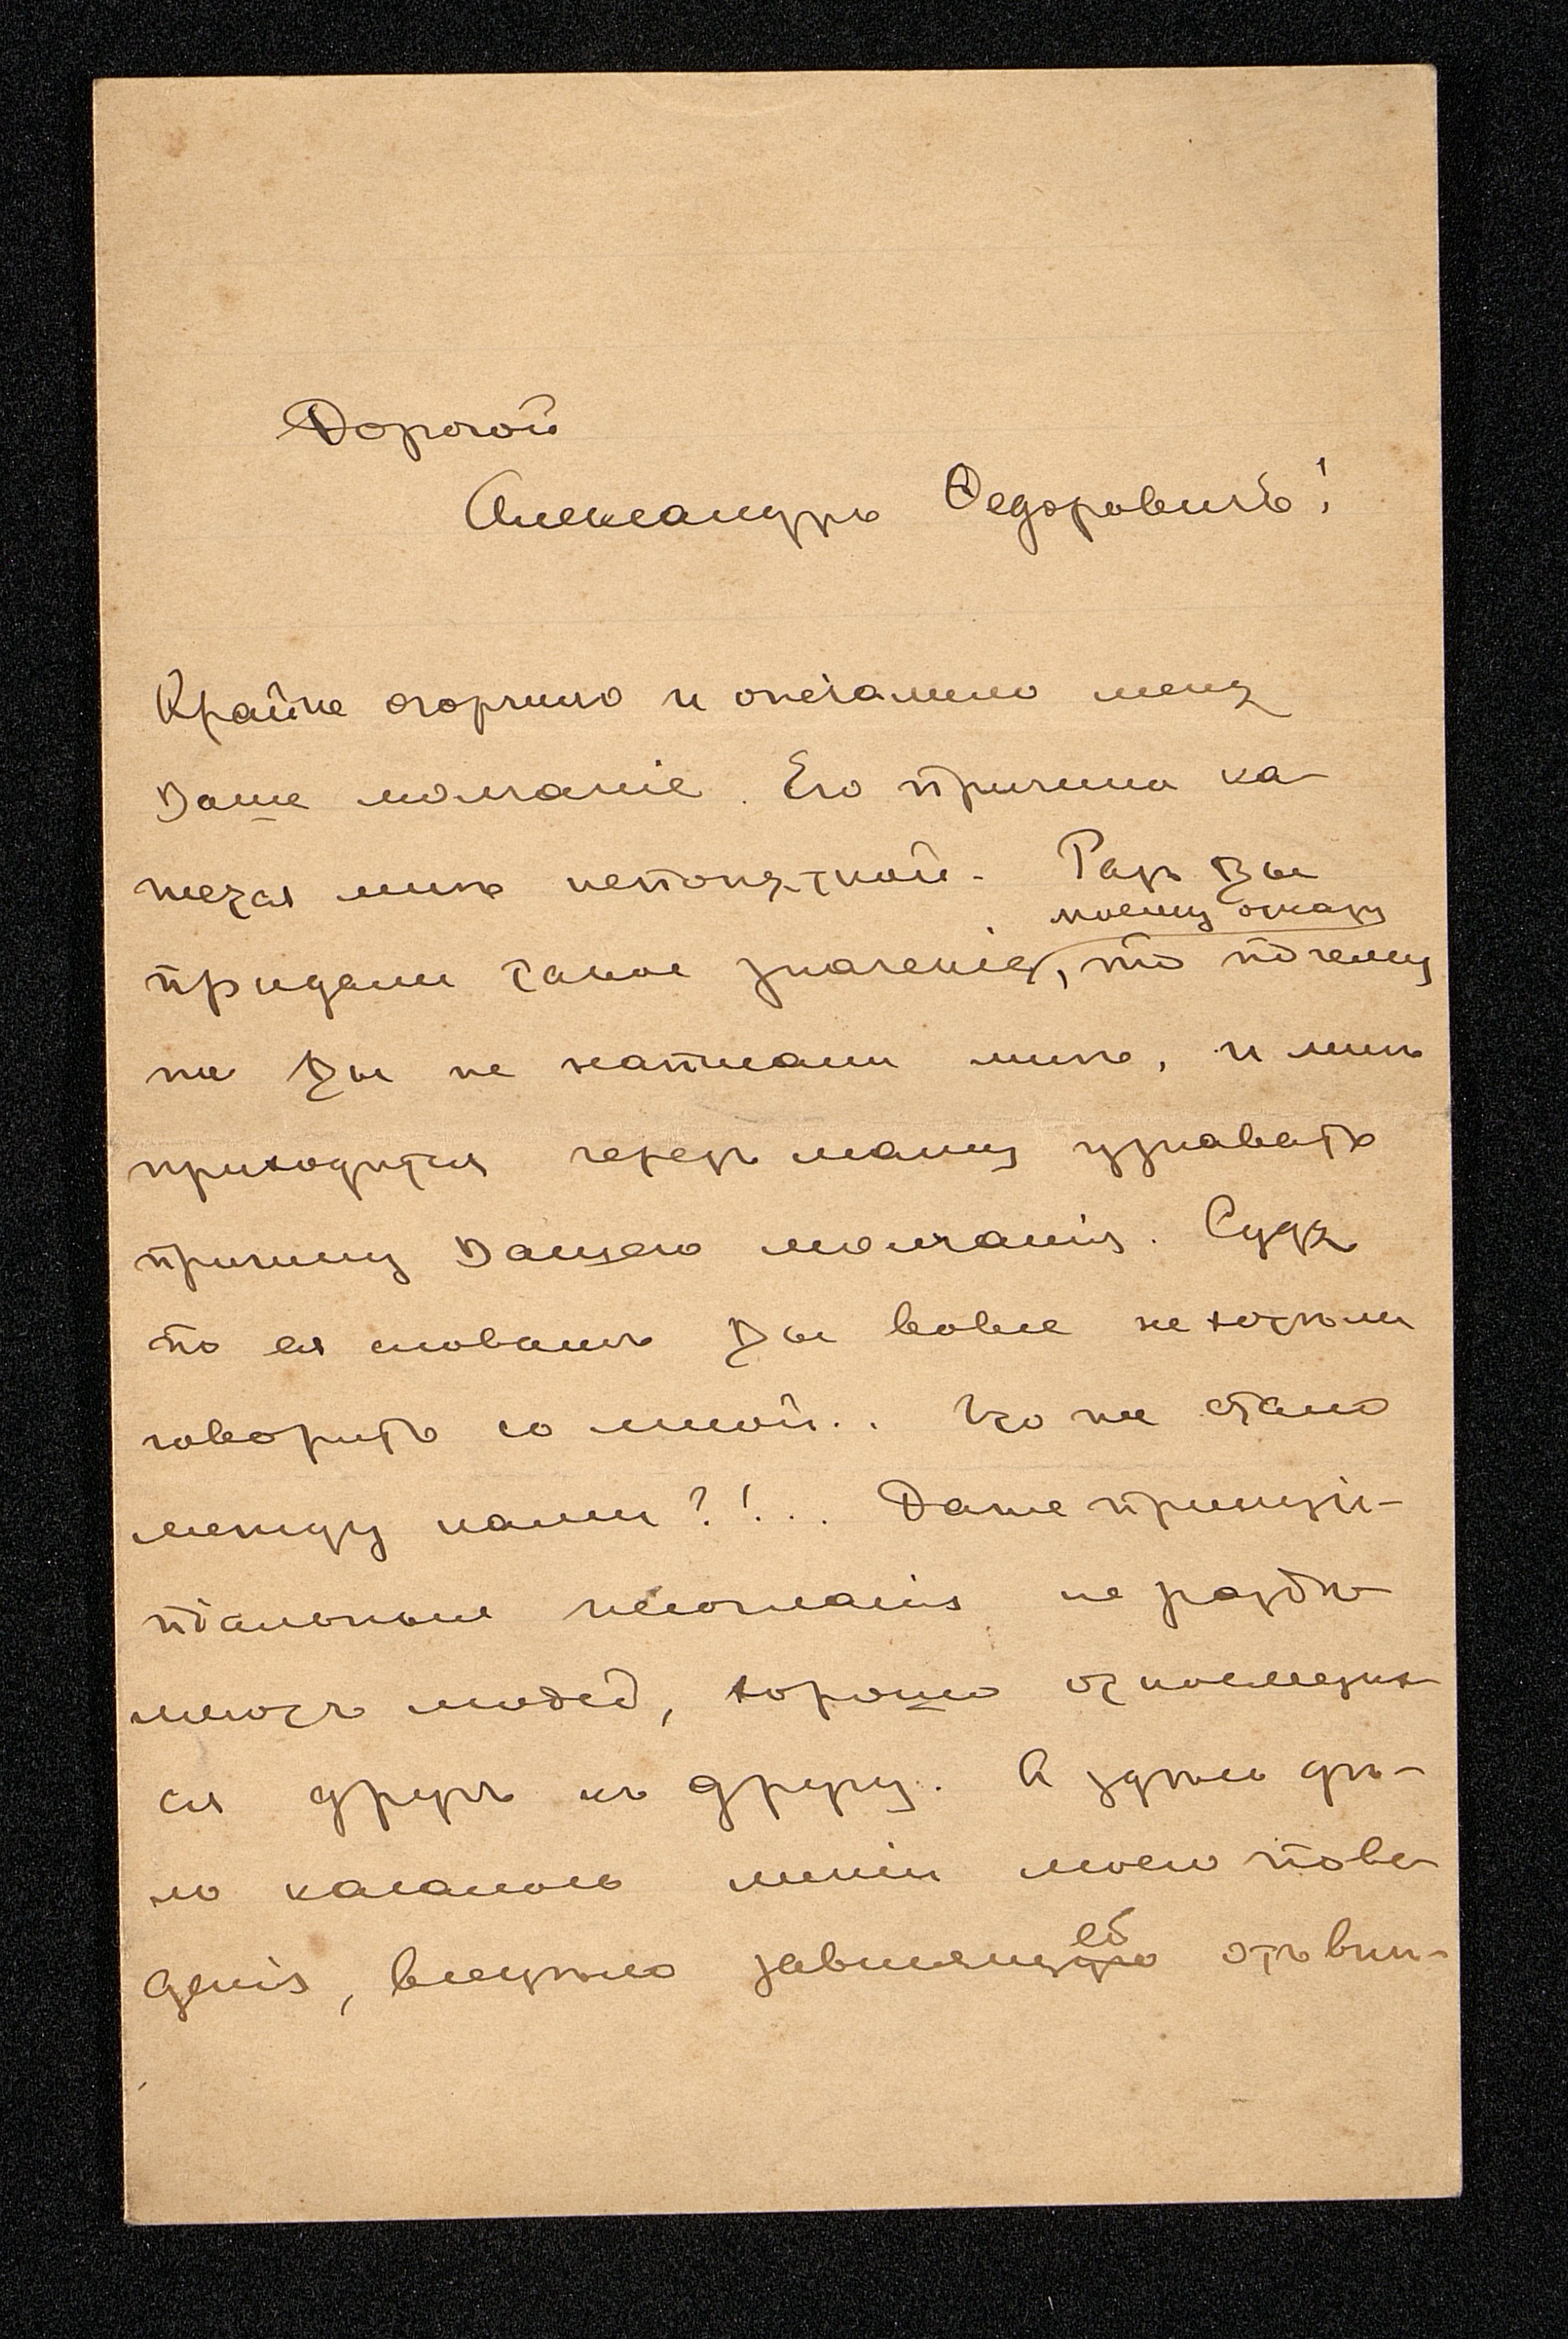 Дорогой
Александръ Федоровичъ!
Крайне огорчило и опечалило меня
Ваше молчаніе. Его причина ка-
жется мнѣ непонятной. Разъ Вы
моему отказу
придали такое значеніе, то почему
же Вы не написали мнѣ, и мнѣ
приходится черезъ маму узнавать
причину Вашего молчанія. Судя
по ея словамъ Вы вовсе не хотѣли
говорить со мной.. Что же стало
между нами?!... Даже принци-
піальныя несогласія не раздѣ-
ляютъ людей, хорошо относящих-
ся другъ къ другу. А здѣсь дѣ-
ло касалось линіи моего пове-
ей
денія, всецѣло зависящую отъ внѣ-